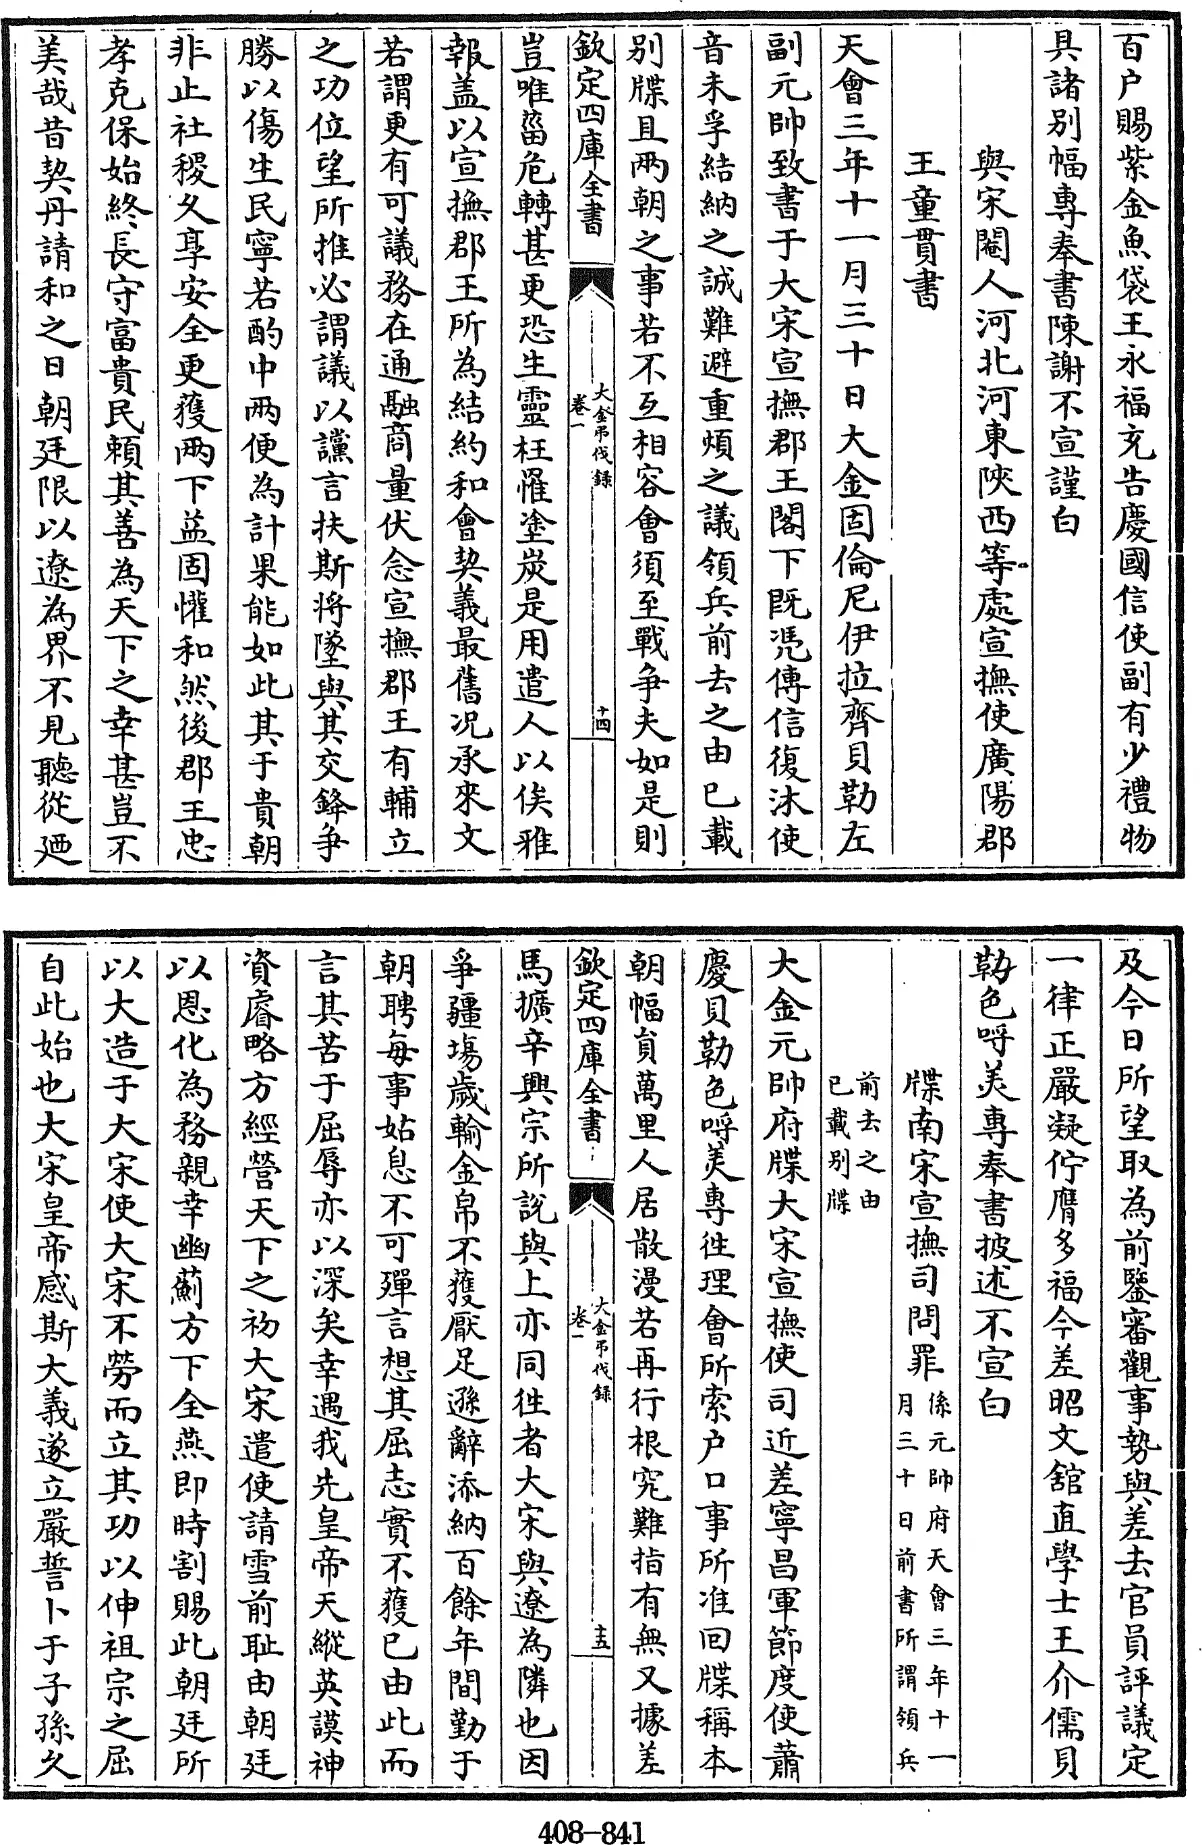 百户賜紫金魚袋王永福充告慶國信使副有少禮物
具諸别幅專奉書陳謝不宣謹白
與宋閹人河北河東陜西等處宣撫使廣陽郡
王童貫書
天會三年十一月三十日大金固倫尼伊拉齊貝勒左
副元帥致書于大宋宣撫郡王閣下既凭傳信復沐使
音未孚結納之誠難避重煩之議領兵前去之由已載
别牒且兩朝之事若不互相容會須至戰争夫如是則
欽定四庫全書
大金弔伐録
卷一
十四
豈唯菑危轉甚更恐生靈枉罹塗炭是用遣人以俟雅
報盖以宣撫郡王所為結約和會契義最舊况承來文
若謂更有可議務在通融商量伏念宣撫郡王有輔立
之功位望所推必謂議以讜言扶斯将墜與其交鋒争
勝以傷生民寧若酌中兩便為計果能如此其于貴朝
非止社稷久享安全更獲兩下益固懽和然後郡王忠
孝克保始終長守富貴民賴其善為天下之幸甚豈不
美哉昔契丹請和之日朝廷限以遼為界不見聽從廼
及今日所望取為前鑒審觀事勢與差去官員評議定
一律正嚴凝佇膺多福今差昭文舘直學士王介儒貝
勒色哷美專奉書披述不宣白
牒南宋宣撫司問罪係元帥府天會三年十一
月三十日前書所謂領兵
前去之由
已載别牒
大金元帥府牒大宋宣撫使司近差寧昌軍節度使蕭
慶貝勒色哷美專徃理會所索户口事所准回牒稱本
朝幅員萬里人居散漫若再行根究難指有無又據差
欽定四庫全書
大金弔伐録
卷一
十五
馬擴辛興宗所說與上亦同徃者大宋與遼為隣也因
爭疆場歲輸金帛不獲厭足遜辭添納百餘年間勤于
朝聘每事姑息不可殫言想其屈志實不獲已由此而
言其苦于屈辱亦以深矣幸遇我先皇帝天縱英謨神
資睿略方經營天下之初大宋遣使請雪前耻由朝廷
以恩化為務親幸幽薊方下全燕即時割賜此朝廷所
以大造于大宋使大宋不勞而立其功以伸祖宗之屈
自此始也大宋皇帝感斯大義遂立嚴誓卜于子孫久
408-841